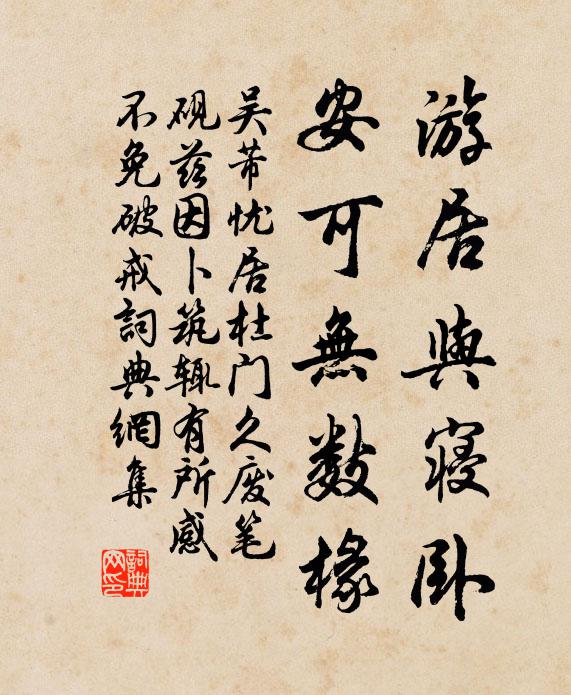 游居與寝卧
安可無數椽
吴芾忧居杜门久废笔
砚兹因卜筑辄有所感
不免破戒詞典網集
詞典
网印